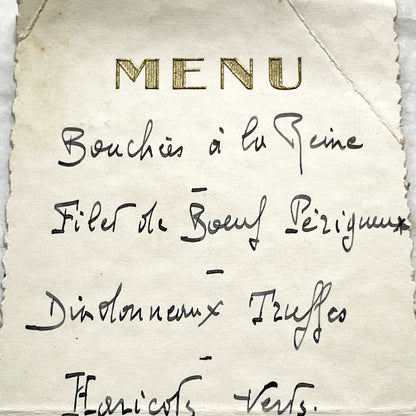 MENU
Bouchées à la Reine
Filet de Bœuf Périgueux
Dindonneaux Truffés
Haricots verts.